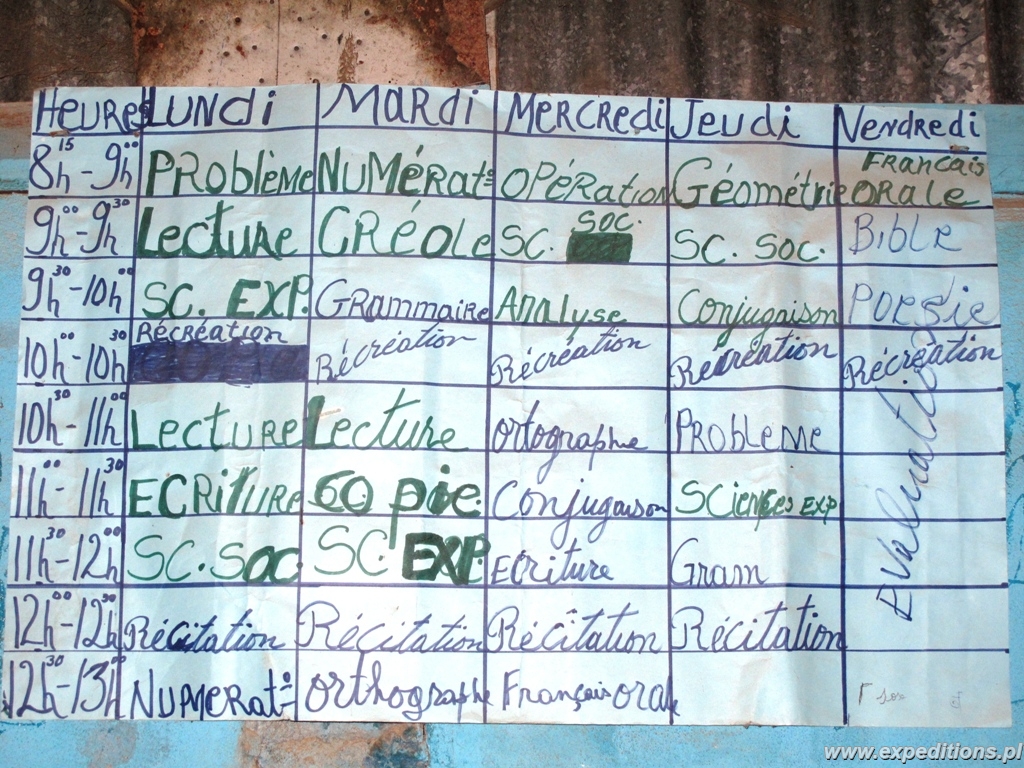 Heures Lundi Mardi Mercredi Jeudi Vendredi
8h15 - 9h00 Problème Numérat° Opération Géométrie Francais orale
9h00 - 9h30 Lecture Créole SC. SOC. SC. SOC. Bible
9h30 - 10h00 SC. EXP. Grammaire Analyse Conjugaison Poesie
10h00 - 10h30 Récréation Récréation Récréation Récréation Récréation
10h30 - 11h00 Lecture Lecture Ortographe Probleme Evaluation
11h00 - 11h30 Ecriture 60 pie. Conjugaison Sciences EXP
11h30 - 12h00 SC. Soc SC. EXP. Ecriture Gram
12h00 - 12h30 Récitation Récitation Récitation Récitation
12h30 - 13h00 Numerat° Orthographe Français oral
www.expeditions.pl